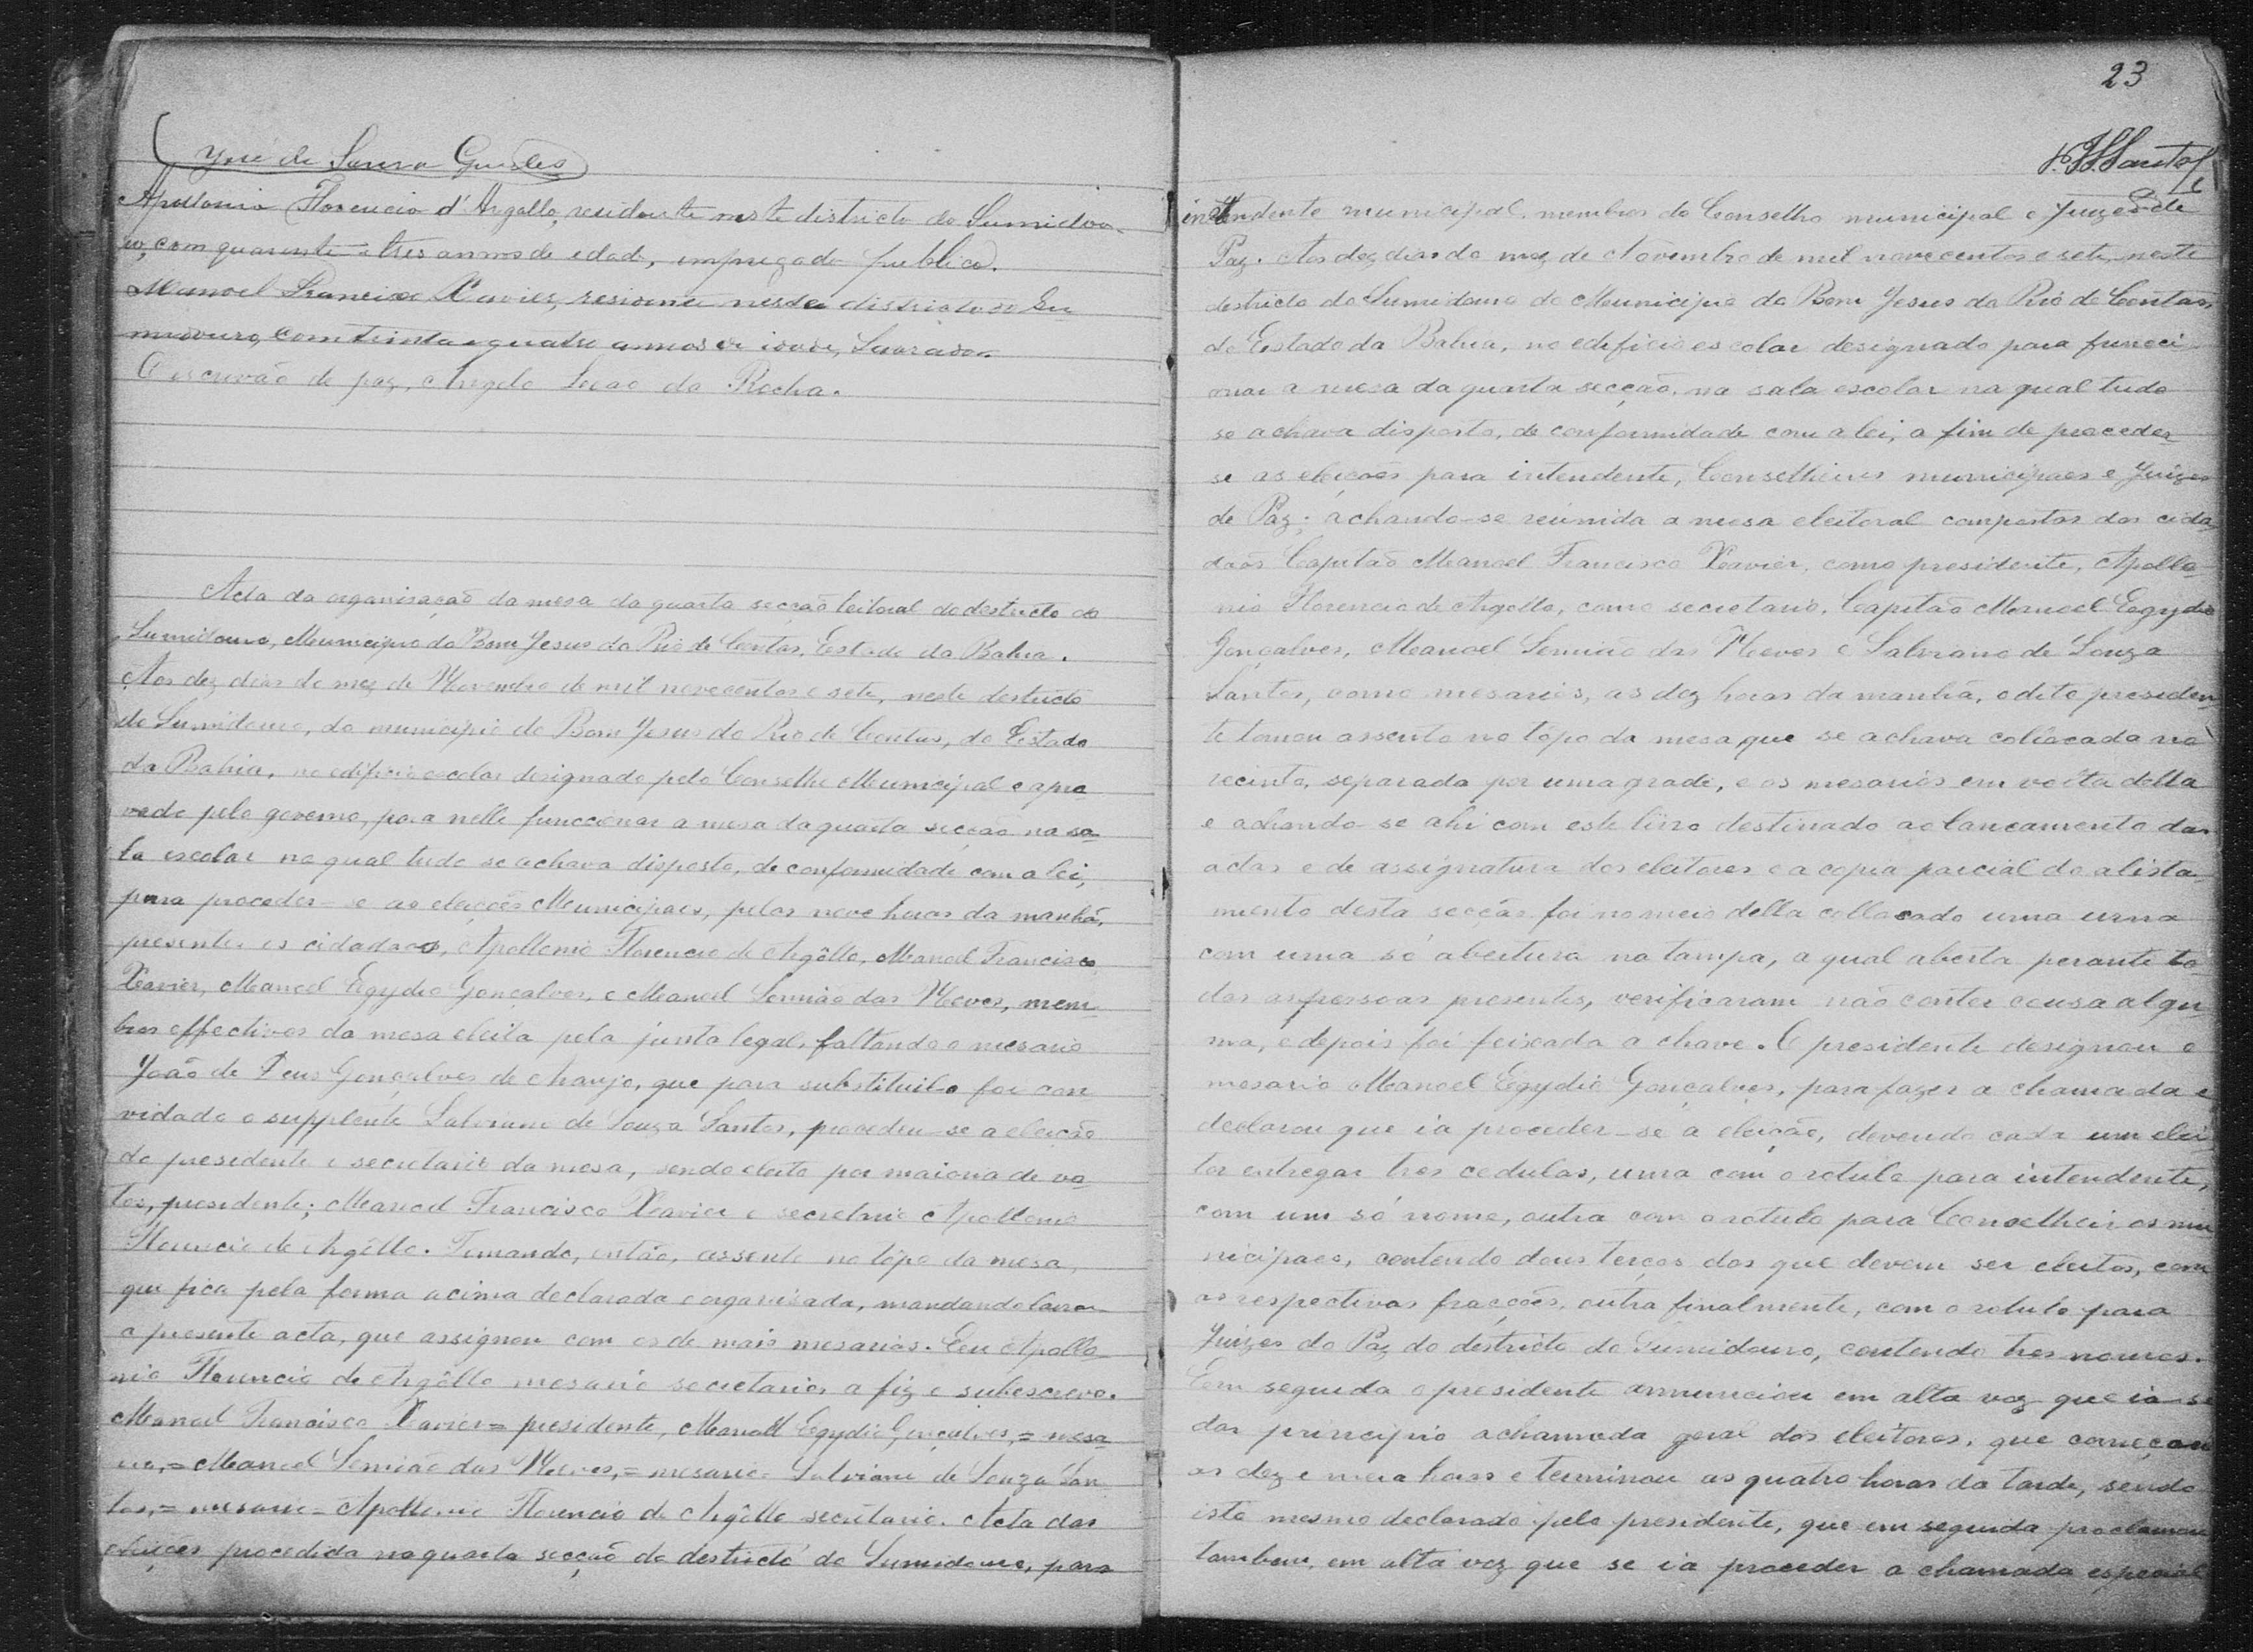 José de Souza Guedes
Apollonio Florencio d'Argollo, residente neste districto do Sumidou-
ro, com quarenta e tres annos de edade, empregado publico.
Manoel Francisco Xavier, residente neste districto do Su
midouro, com trinta e quatro annos de idade, Lavrador.
O escrivão de paz, Angelo Leão da Rocha.
Acta da organisação da mesa da quarta secção leitoral do destricto do
Sumidouro, Municipio do Bom Jesus do Rio de Contas, Estado da Bahia.
Aos dez dias do mez de Novembro de mil novecentos e sete, neste destricto
do Sumidouro, do municipio do Bom Jesus do Rio de Contas, do Estado
da Bahia, no edificio escolar designado pelo Conselho Municipal e apro
vado pelo governo, para nelle funccionar a mesa da quarta secção na sa-
la escolar na qual tudo se achava disposto, de conformidade com a lei,
para proceder-se as eleições Municipaes, pelas nove horas da manhã,
presentes os cidadãos, Apollonio Florencio de Argôllo, Manoel Francisco
Xavier, Manoel Egydio Gonçalves, e Manoel Semião das Neves, mem-
bros effectivos da mesa eleita pela junta legal, faltando o mesario
João de Deus Gonçalves de Araujo, que para substituilo foi con
vidado o supplente Salviano de Souza Santos, procedeu-se a eleição
do presidente e secretario da mesa, sendo eleito por maioria de vo-
tos, presidente; Manoel Francisco Xavier e secretario Apollonio
Florencio de Argôllo. Tomando, então, assento no tôpo da mesa,
que fica pela forma acima declarada e organisada, mandando lavrar
a presente acta, que assignou com os de mais mesarios. Eu Apollo-
nio Florencio de Argôllo mesario secretario, a fiz e subescrevo.
Manoel Francisco Xavier = presidente, Manoel Egydio Gonçalves, = mesa-
rio, = Manoel Semião das Neves, = mesario Salviano de Souza San-
tos, = mesario = Apollonio Florencio de Argôllo secretario. Acta das
eleições procedida na quarta secção do destricto do Sumidouro, para
23
intendente municipal, membros do Conselho municipal e Juizes de
Paz. Aos dez dias do mez de Novembro de mil novecentos e sete, neste
destricto do Sumidouro do Municipio do Bom Jesus do Rio de Contas,
do Estado da Bahia, no edificio escolar designado para funcci-
onar a mesa da quarta secção, na sala escolar na qual tudo
se achava disposto, de conformidade com a lei, a fim de proceder-
se as eleições para intendente, Conselheiros municipaes e Juizes
de Paz; achando-se reúnida a mesa eleitoral compostas dos cida-
daõs Capitaõ Manoel Francisco Xavier, como presidente, Apollo-
nio Florencio de Argollo, como secretario, Capitão Manoel Egydio
Gonçalves, Manoel Semião das Neves e Salviano de Souza
Santos, como mesarios, as dez horas da manhã, o dito presiden-
te tomou assento no tôpo da mesa, que se achava collocada no
recinto, separada por uma grade, e os mesarios em volta della
e achando-se ahi com este livro destinado ao lancamento das
actas e de assignatura dos eleitores e a copia parcial do alista-
mento desta secção, foi no meio della collocado uma urna
com uma só abertura na tampa, a qual aberta perante to-
das as pessoas presentes, verificaram não conter cousa algu-
ma, e depois foi feixada a chave. O presidente designou o
mesario Manoel Egydio Gonçalves, para fazer a chamada e
declarou que ia proceder-se a eleição, devendo cada um elei-
tor entregar tres cedulas, uma com o rotulo para intendente,
com um só nome, outra com o rotulo para Conselheiros mu
nicipaes, contendo dous terços dos que devem ser eleitos, com
as respectivas fracções, outra finalmente, com o rotulo para
Juizes do Paz do destricto do Sumidouro, contendo tres nomes.
Em seguida o presidente annunciou em alta voz que ia-se
dar principio a chamada geral dos eleitores, que começou
as dez e meia horas e terminou as quatro horas da tarde, sendo
isto mesmo declarado pelo presidente, que em seguida proclamou
tambem, em alta voz que se ia proceder a chamada especial